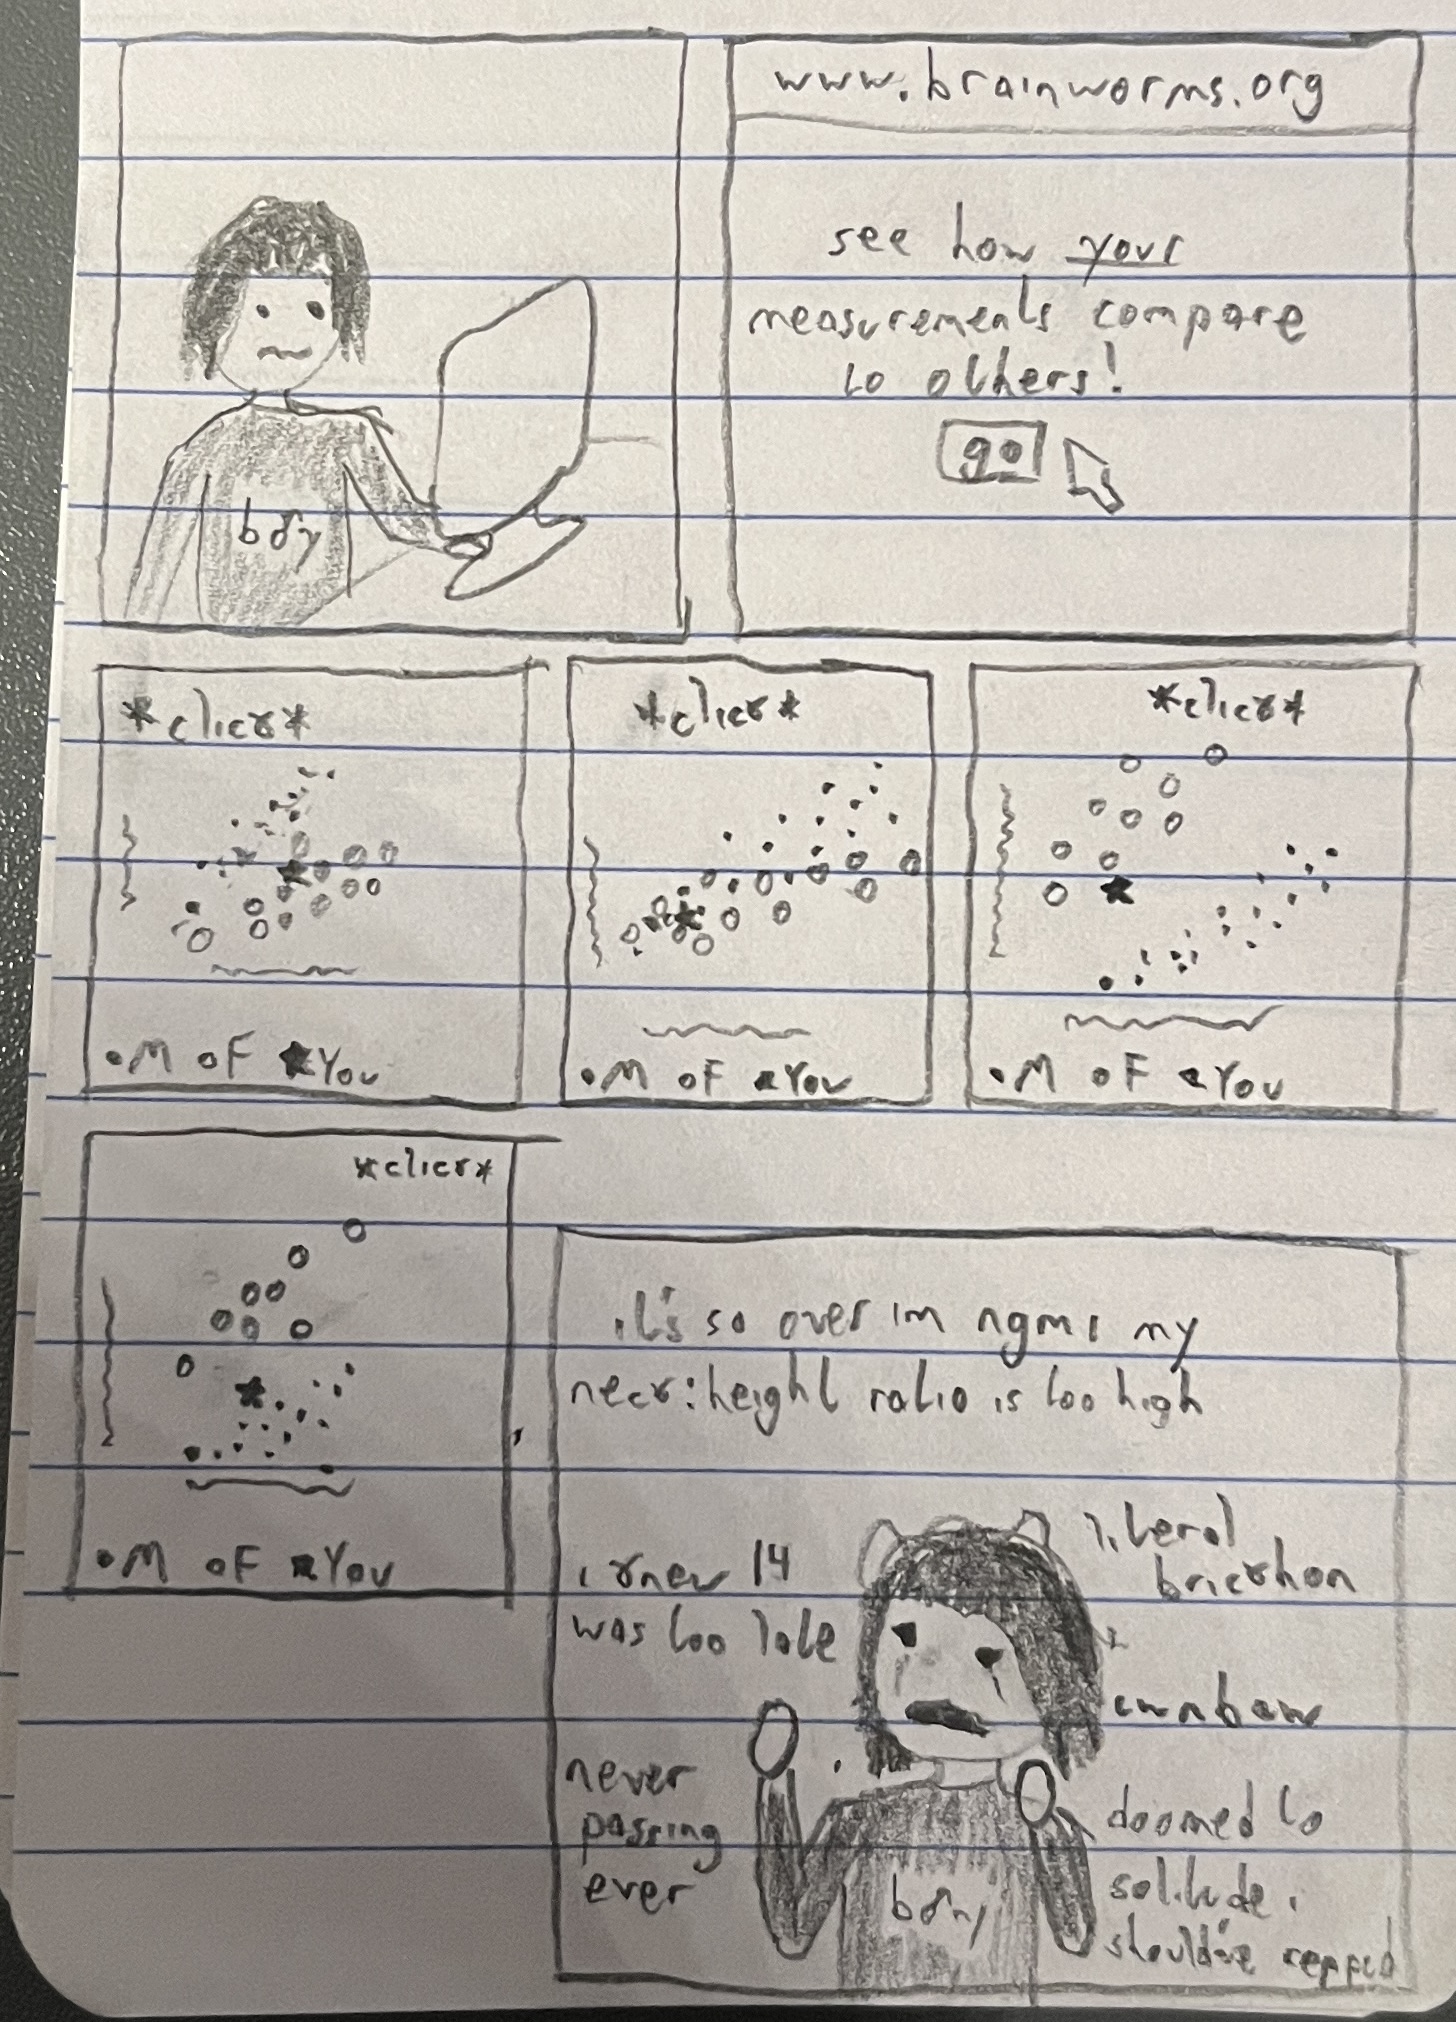 www.brainworms.org
see how your
measurements compare
to others!
go
boy
*click*
•M oF ★You
*click*
•M oF ★You
*click*
•M oF ★You
*click*
•M oF ★You
it's so over im ngmi my
neck:height ratio is too high
i knew 14
was too late
literal
brickhon
never
passing
ever
doomed to
solitude i
should've repped
boy